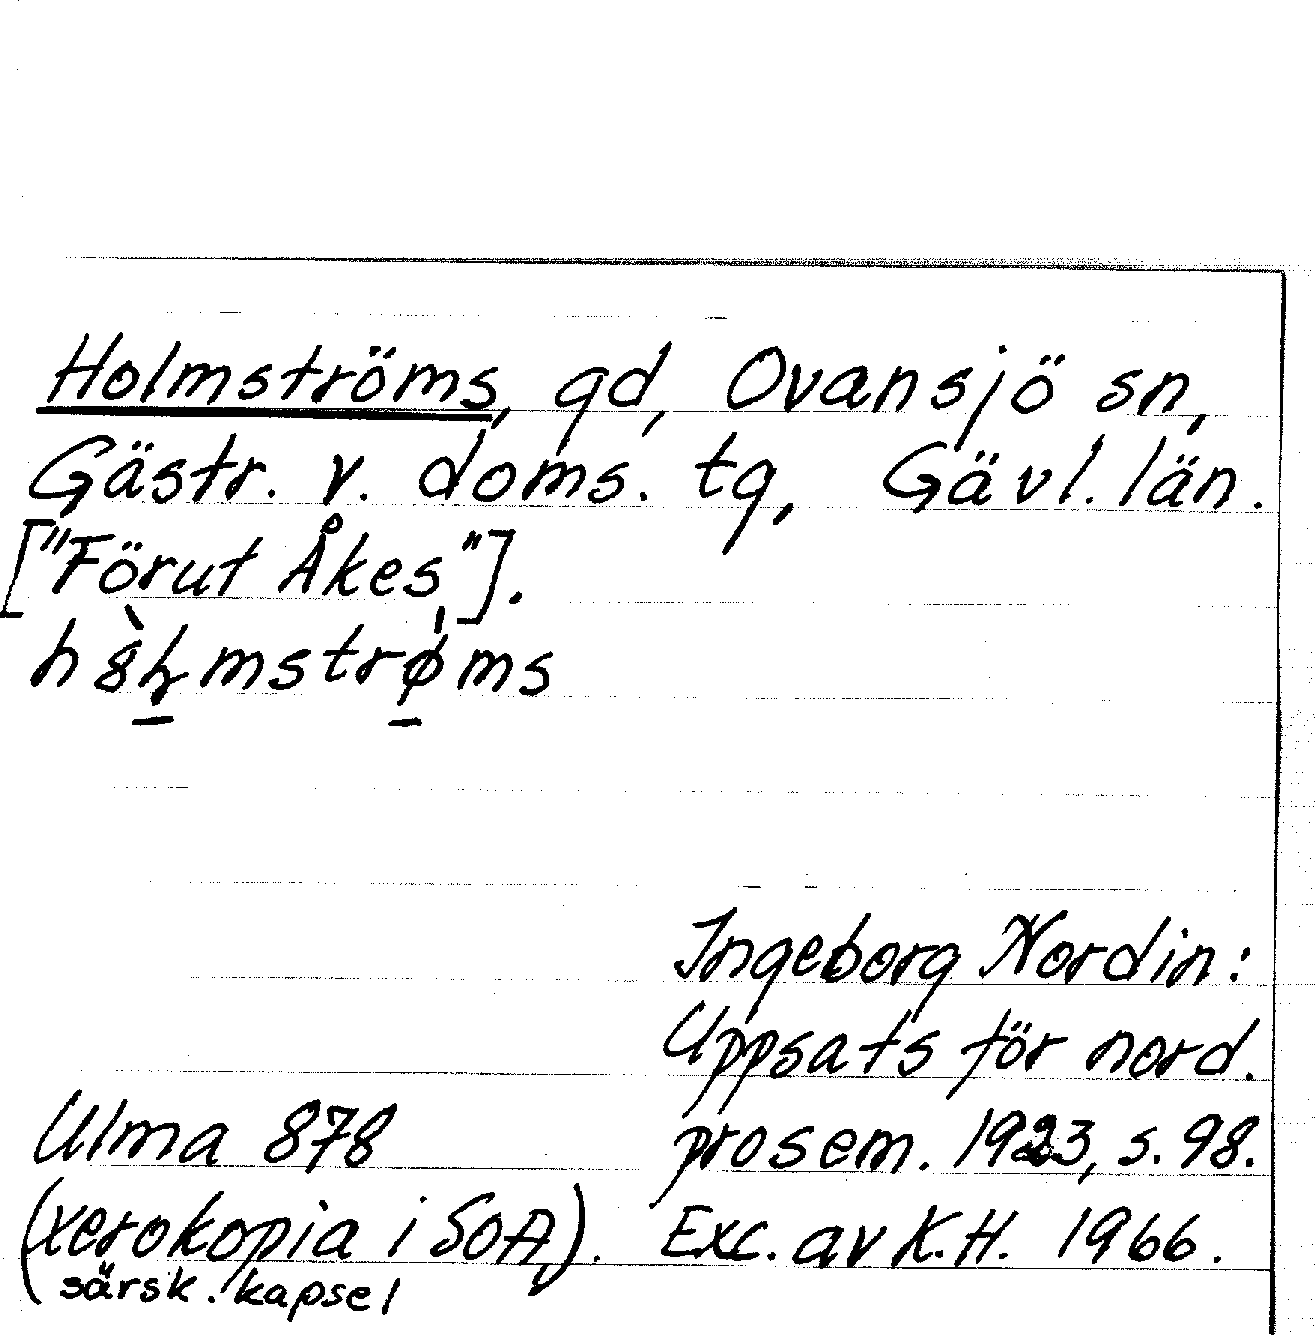 Holmströms, gd, Ovansjö sn,
Gästr. v. doms. tg, Gävl. län.
["Förut Åkes"].
Ingeborg Nordin:
Uppsats för nord.
Ulma 878 prosem. 1923, s. 98.
(xerokopia i SOA). Exc. av K.H. 1966.
särsk. kapsel